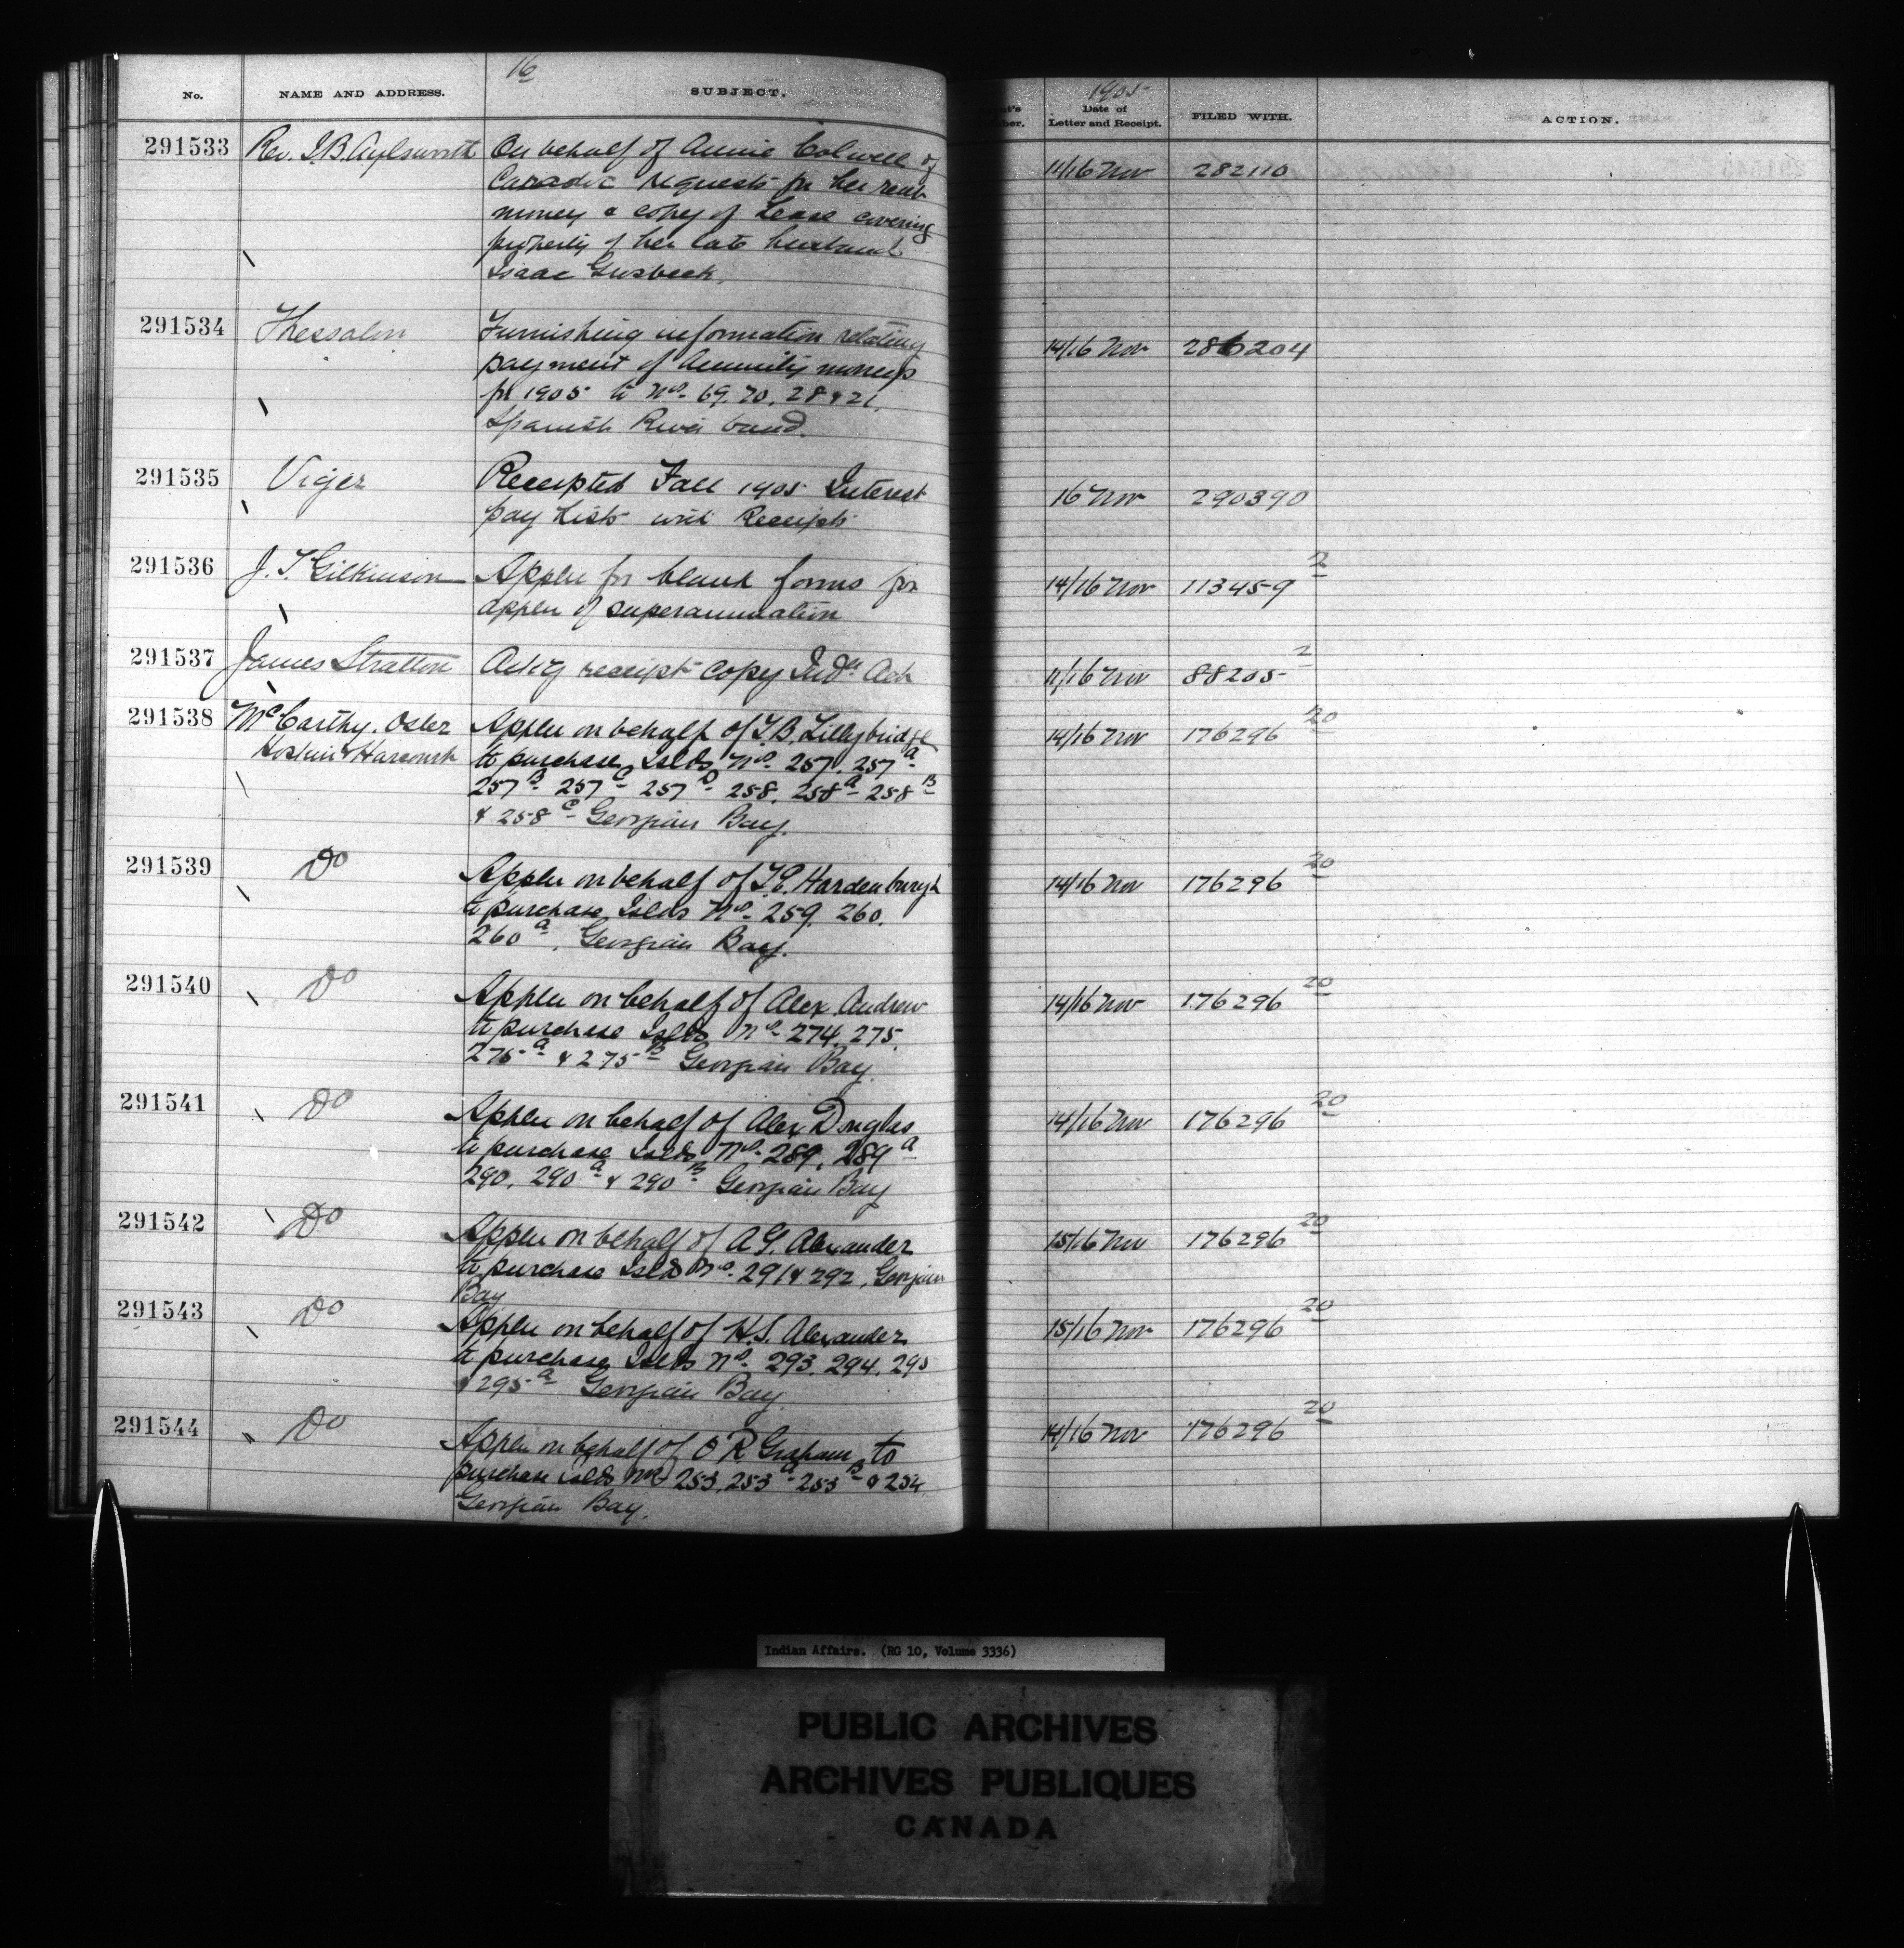 16
1905
No. NAME AND ADDRESS. SUBJECT. Date of Letter and Receipt. FILED WITH. ACTION.
291533 Rev. J.B. Aylsworth On behalf of Annie Colwell of 11/16 Nov 282110
Caradoc requests for her rent
money & copy of Lease covering
property of her late husband
Isaac
291534 Thessalon Furnishing information relating 14/16 Nov 286204
payment of Annuity moneys
for 1905 to Nos. 69, 70, 28 & 21,
Spanish River band.
291535 Viger Receipted Fall 1905 Interest 16 Nov 290390
pay Lists with Receipts
291536 J. T. Gilkinson Applen for blank forms for 14/16 Nov 113459 2
applen of superannuation
291537 James Stratton Ackg receipt copy Indn Act 11/16 Nov 88205 2
291538 McCarthy. Osler Applen on behalf of T.B. Lillybridge 14/16 Nov 176296 20
Hoskin & Harcourt to purchase Islds Nos. 257, 257A
257B 257C 257D 258, 258A 258B
& 258C Georgian Bay.
291539 Do Applen on behalf of Hardenburgh 14/16 Nov 176296 20
to purchase Islds Nos. 259, 260,
260A, Georgian Bay.
291540 Do Applen on behalf of Alex. Andrew 14/16 Nov 176296 20
to purchase Islds Nos. 274, 275,
275A & 275B Georgian Bay
291541 Do Applen on behalf of Alex Douglas 14/16 Nov 176296 20
to purchase Islds Nos. 289, 289A
290, 290A & 290B Georgian Bay
291542 Do Applen on behalf of A G. Alexander 15/16 Nov 176296 20
to purchase Islds Nos. 291 & 292, Georgian
Bay
291543 Do Applen on behalf of H.S. Alexander 15/16 Nov 176296 20
to purchase Islds Nos. 293, 294, 295
& 295A Georgian Bay
291544 Do Applen on behalf of O R Graham to 14/16 Nov 176296 20
purchase islds Nos 253, 253A 253B & 254
Georgian Bay.
Indian Affairs. (RG 10, Volume 3336)
PUBLIC ARCHIVES
ARCHIVES PUBLIQUES
CANADA